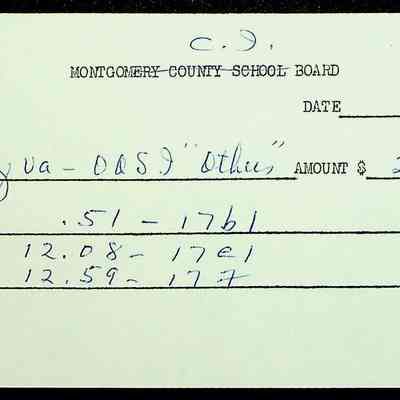 C. I.
MONTGOMERY COUNTY SCHOOL BOARD
DATE
Va - DDSI "Other" AMOUNT $ 2
.51 - 17b1
12.08 - 17c1
12.59 - 17